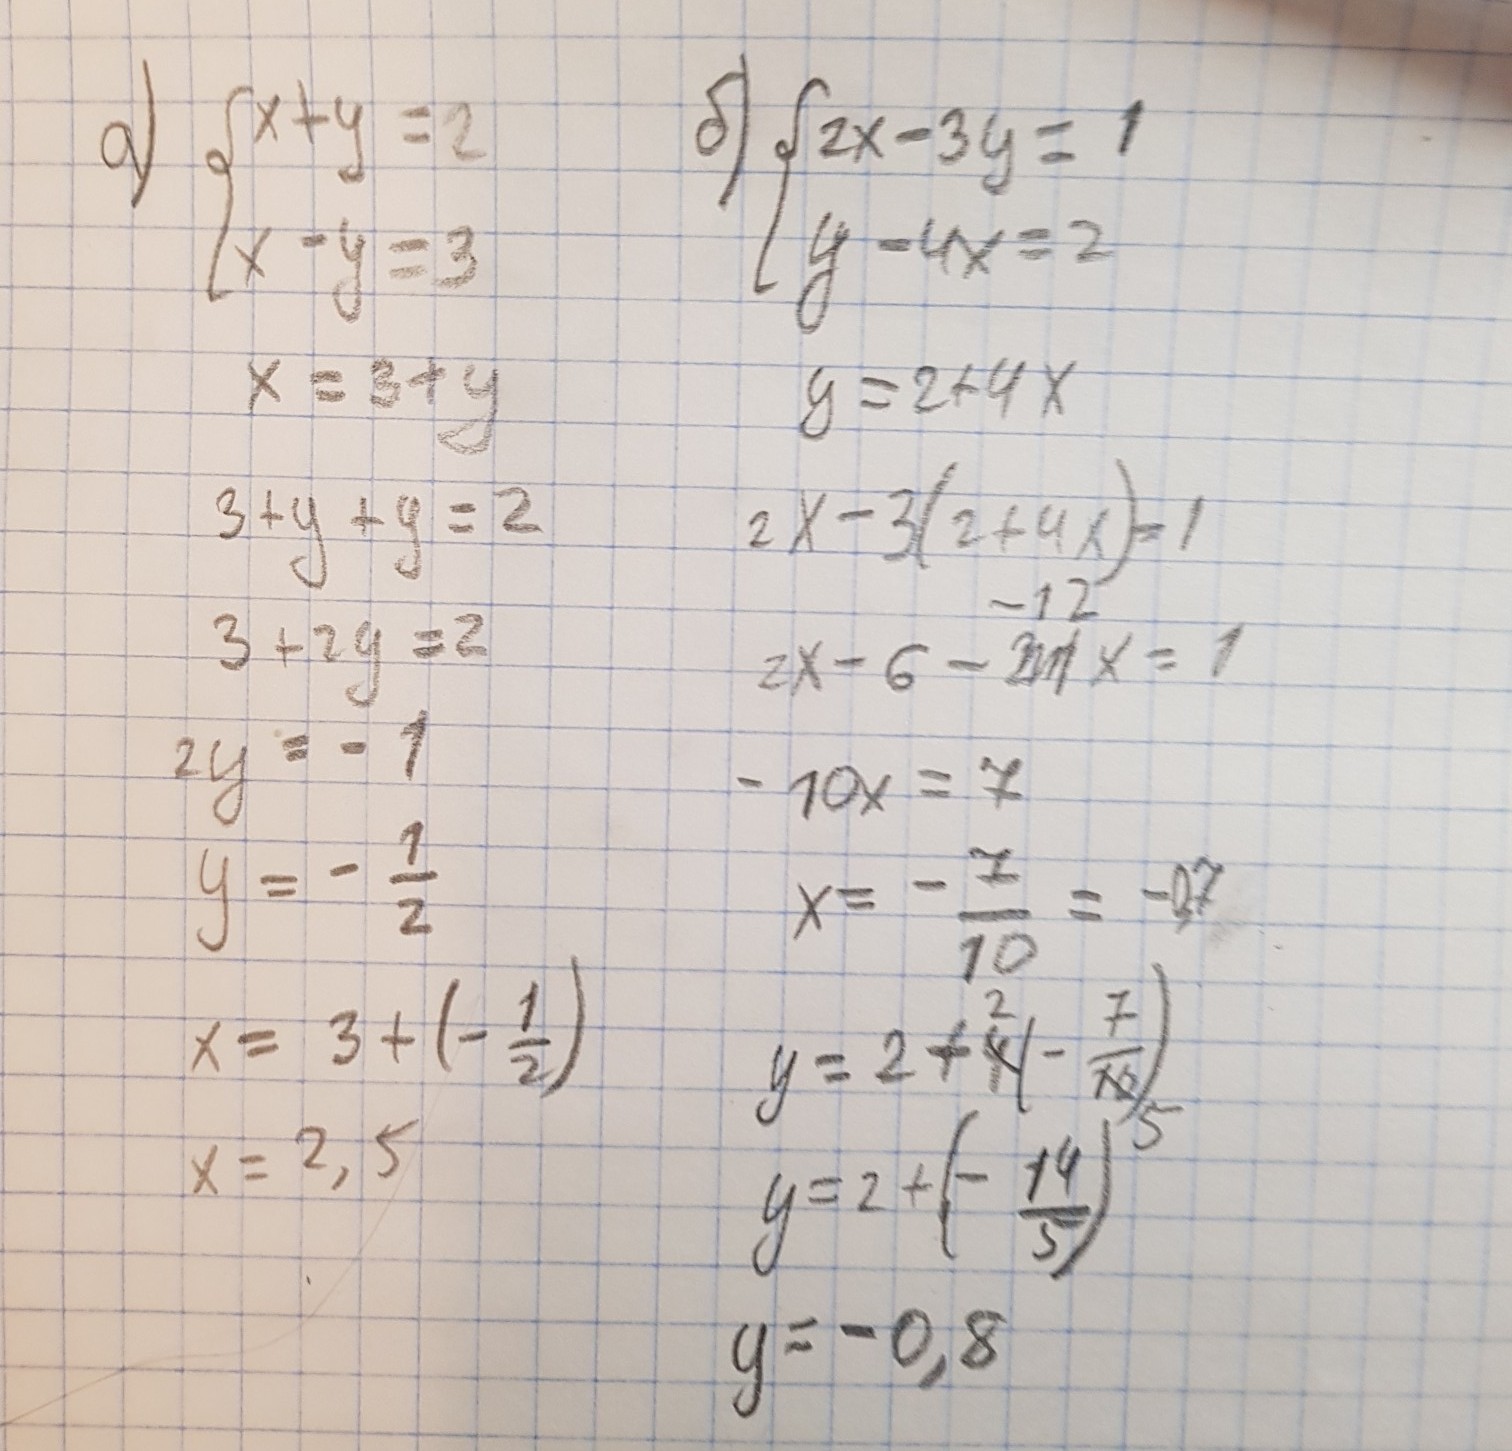 а) { x + y = 2
x - y = 3
x = 3 + y
3 + y + y = 2
3 + 2y = 2
2y = - 1
y = - 1/2
x = 3 + (- 1/2)
x = 2,5
б) { 2x - 3y = 1
y - 4x = 2
y = 2 + 4x
2x - 3(2 + 4x) = 1
-12
2x - 6 - x = 1
- 10x = 7
x = - 7/10 = -0,7
2
y = 2 + 4(- 7/10)
5
y = 2 + (- 14/5)
y = - 0,8